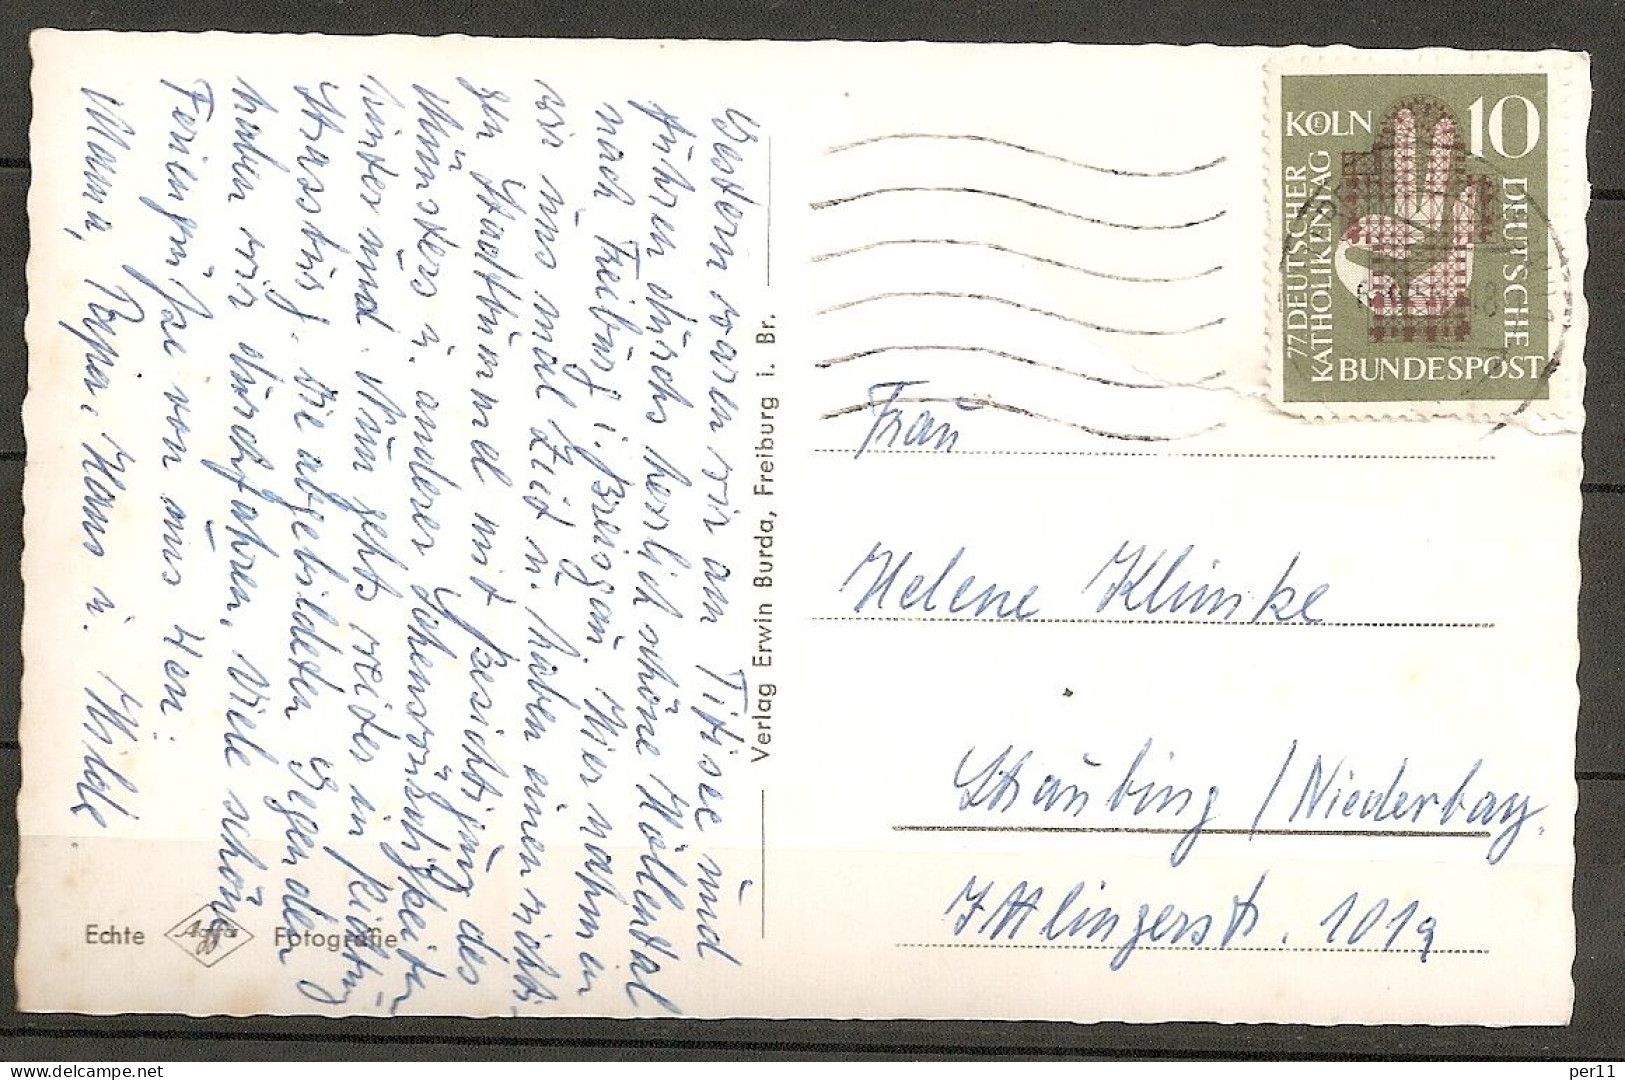 Gestern waren wir am Titisee und
fuhren durchs herrlich schöne Höllental
nach Freiburg i. Breisgau. Hier nahmen
wir uns mal Zeit u. haben einen richti-
gen Stadtbummel mit Besichtigung des
Münsters u. anderer Sehenswürdigkeiten
hinter uns. Nun gehts weiter in Richtung
Strassburg. Die abgebildeten Gegenden
haben wir durchfahren. Viele schöne
Feriengrüße von uns 4en:
Mama, Papa, Hans u. Hilde
Echte Agfa Fotografie
Verlag Erwin Burda, Freiburg i. Br.
77. DEUTSCHER
KATHOLIKENTAG
KOELN
10
DEUTSCHE
BUNDESPOST
Frau
Helene Klimke
Straubing / Niederbay.
Ittlingerstr. 101a
per11